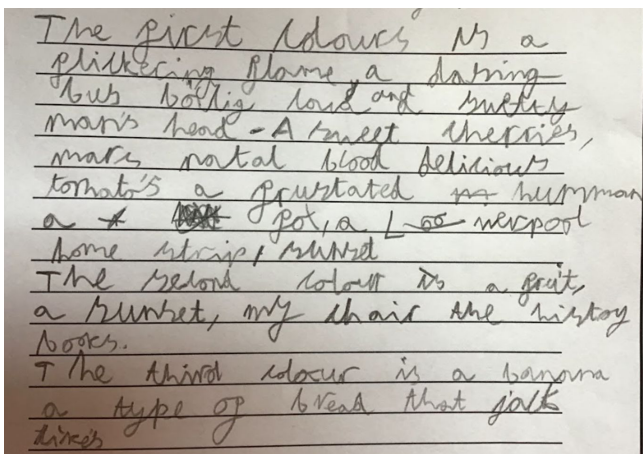 The first colours is a
flitkering flame, a daring
bus boilig loud and sweety
man's head - A sweet cherries,
mars natal blood delicious
tomato's a frustated humman
a pot, a L nerpool
home strip, sunset
The second colour is a fruit,
a sunset, my chair the history
books.
The third colour is a banana
a type of bread that jack
likes